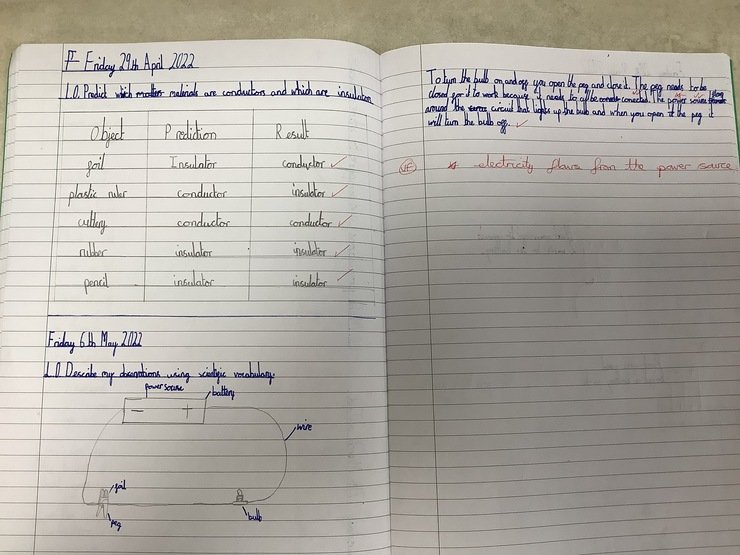 F Friday 29th April 2022
L.O. Predict which matters materials are conductors and which are insulators
Object Prediction Result
foil Insulator conductor
plastic ruler conductor insulator
cutlery conductor conductor
rubber insulator insulator
pencil insulator insulator
Friday 6th May 2022
L.O. Describe my observations using scientific vocabulary.
power source
battery
- +
wire
foil
peg
bulb
To turn the bulb on and off you open the peg and close it. The peg needs to be
closed for it to work because it needs to all be connected. The power source flows
around the circuit that lights up the bulb and when you open it the peg it
will turn the bulb off.
VF * electricity flows from the power source